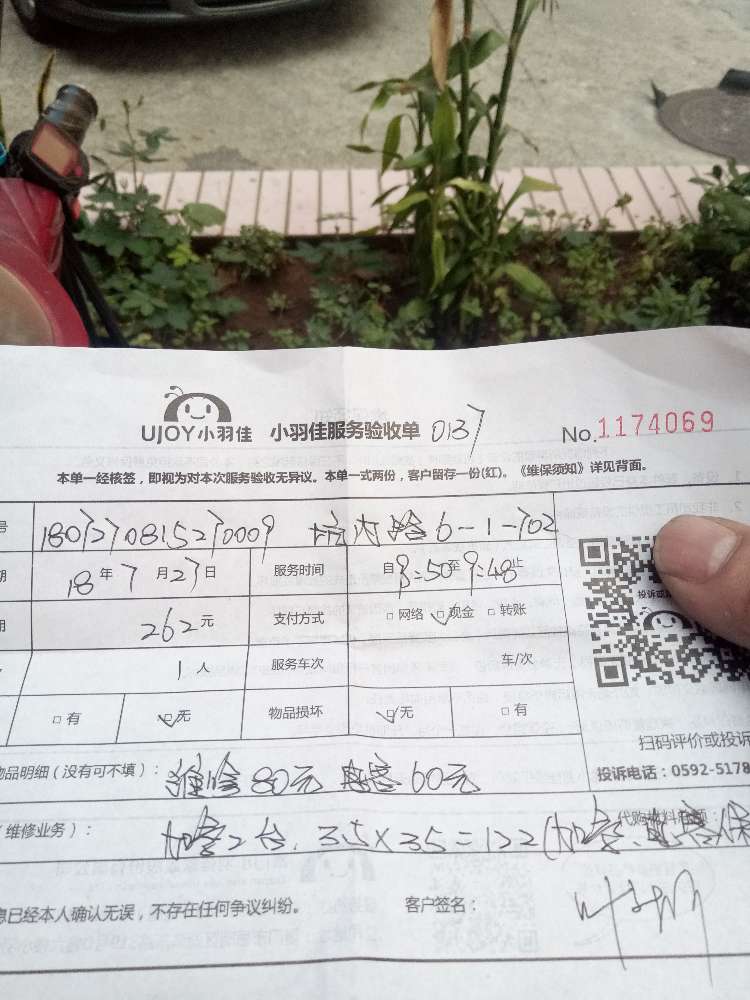 UJOY小羽佳 小羽佳服务验收单 0137 No.1174069
本单一经核签，即视为对本次服务验收无异议。本单一式两份，客户留存一份(红)。《维保须知》详见背面。
号 6-1-702
期 18年7月27日 服务时间 自 至9:48止
用 262元 支付方式 □网络 ☑现金 □转账
1人 服务车次 车/次
□有 ☑无 物品损坏 ☑无 □有
扫码评价或投诉
物品明细（没有可不填）： 维修80元 电容60元
投诉电话：0592-5178
（维修业务）： 加雪2台. 35×35=122(加雪、电容保
代购材料
息已经本人确认无误，不存在任何争议纠纷。 客户签名：